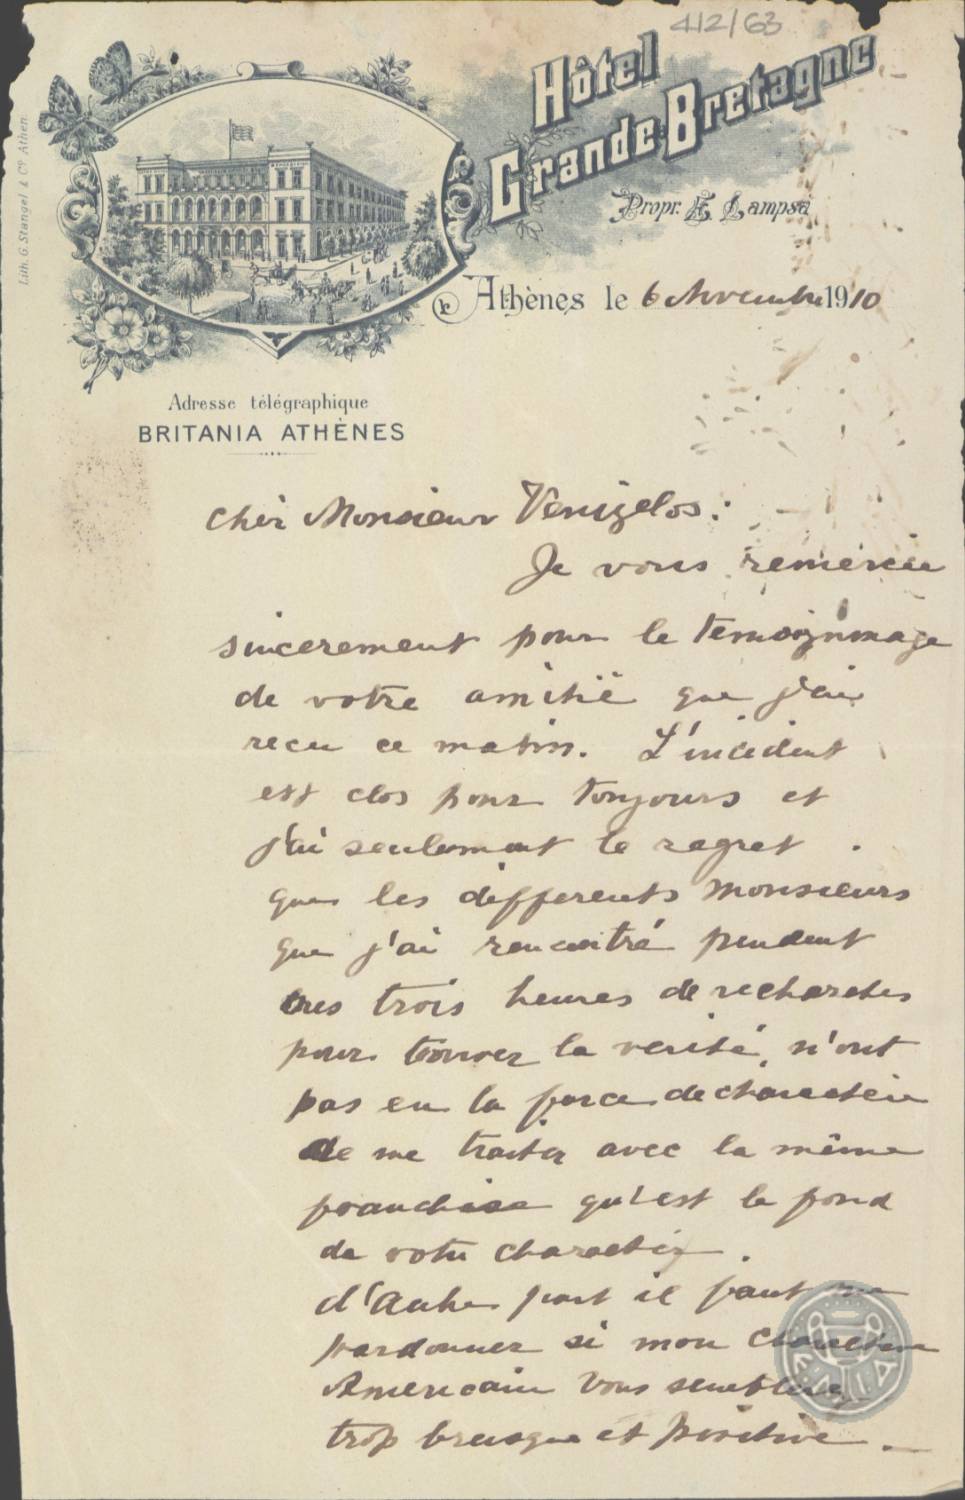 412/63
Hôtel
Grande Bretagne
Propr. E. Lampsa
Lith. G. Stangel & Co Athen
Athènes le 6 Novembre 1910
Adresse télégraphique
BRITANIA ATHÈNES
Cher Monsieur Venizelos:
Je vous remercie
sincerement pour le temoignmage
de votre amitiè que j'ai
recu ce matin. L'incident
est clos pour toujours et
j'ai seulement le regret
que les differents monsieurs
que j'ai rencontré pendent
ces trois heures de recherches
pour trouver la verité, n'ont
pas eu la force de charactère
de me traiter avec la même
franchise qu'est le fond
de votre charactèr.
d'autre part il faut me
pardonner si mon charactere
Americain vous semblera
trop brusque et positive.